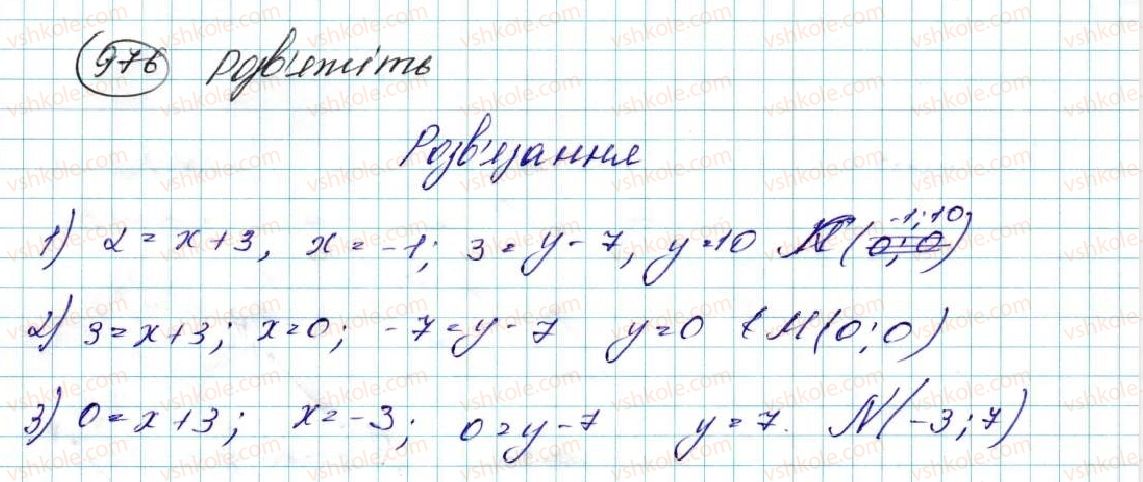 976 Розв'яжіть
Розв'язання
1) 2 = x + 3, x = -1; 3 = y - 7, y = 10 K (-1; 10)
2) 3 = x + 3; x = 0; -7 = y - 7 y = 0 M (0; 0)
3) 0 = x + 3; x = -3; 0 = y - 7 y = 7. N (-3; 7)